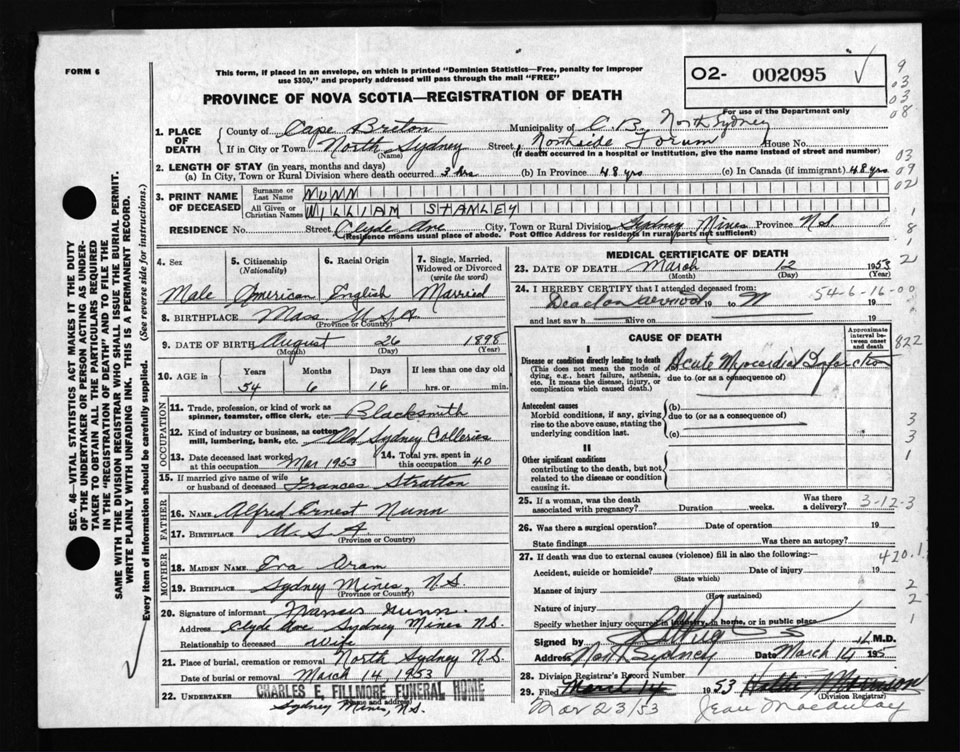 FORM 6
This form, if placed in an envelope, on which is printed "Dominion Statistics—Free, penalty for improper
use $300," and properly addressed will pass through the mail "FREE"
O2- 002095 ✓
PROVINCE OF NOVA SCOTIA—REGISTRATION OF DEATH
For use of the Department only
9
03
03
08
03
09
02
1
8
1
2
SEC. 46—VITAL STATISTICS ACT MAKES IT THE DUTY
OF THE UNDERTAKER OR PERSON ACTING AS UNDER-
TAKER TO OBTAIN ALL THE PARTICULARS REQUIRED
IN THE "REGISTRATION OF DEATH" AND TO FILE THE
SAME WITH THE DIVISION REGISTRAR WHO SHALL ISSUE THE BURIAL PERMIT.
WRITE PLAINLY WITH UNFADING INK. THIS IS A PERMANENT RECORD.
Every item of information should be carefully supplied. (See reverse side for instructions.)
1. PLACE OF DEATH
County of Cape Breton Municipality of C.B. North Sydney
If in City or Town North Sydney Street Northside Forum House No.
(Name) (If death occurred in a hospital or institution, give the name instead of street and number)
2. LENGTH OF STAY (in years, months and days)
(a) In City, Town or Rural Division where death occurred 3 hrs (b) In Province 48 yrs (c) In Canada (if immigrant) 48 yrs
3. PRINT NAME OF DECEASED
Surname or Last Name NUNN
All Given or Christian Names WILLIAM STANLEY
RESIDENCE No. Street Clyde Ave City, Town or Rural Division Sydney Mines Province N.S.
(Residence means usual place of abode. Post Office Address for residents in rural parts not sufficient)
4. Sex
Male
5. Citizenship (Nationality)
American
6. Racial Origin
English
7. Single, Married, Widowed or Divorced (write the word)
Married
8. BIRTHPLACE Mass U.S.A
(Province or Country)
9. DATE OF BIRTH August 26 1898
(Month) (Day) (Year)
10. AGE in Years Months Days If less than one day old
54 6 16 hrs. or min.
OCCUPATION
11. Trade, profession, or kind of work as spinner, teamster, office clerk, etc. Blacksmith
12. Kind of industry or business, as cotton mill, lumbering, bank, etc. Old Sydney Collieries
13. Date deceased last worked at this occupation Mar 1953
14. Total yrs. spent in this occupation 40
15. If married give name of wife or husband of deceased Frances Stratton
FATHER
16. NAME Alfred Ernest Nunn
17. BIRTHPLACE U.S.A.
(Province or Country)
MOTHER
18. MAIDEN NAME Eva Oram
19. BIRTHPLACE Sydney Mines, N.S.
(Province or Country)
20. Signature of informant Frances Nunn
Address Clyde Ave Sydney Mines N.S.
Relationship to deceased Wife
21. Place of burial, cremation or removal North Sydney N.S.
Date of burial or removal March 14, 1953
22. UNDERTAKER CHARLES E. FILLMORE FUNERAL HOME
Sydney Mines, N.S.
MEDICAL CERTIFICATE OF DEATH
23. DATE OF DEATH March 12 1953
(Month) (Day) (Year)
24. I HEREBY CERTIFY that I attended deceased from:
Dead on arrival 19 to 19
54-6-16-00
and last saw h alive on 19
CAUSE OF DEATH
Approximate interval between onset and death
822
I
Disease or condition directly leading to death
(This does not mean the mode of dying, e.g., heart failure, asthenia, etc. It means the disease, injury, or complication which caused death.)
Acute Myocardial Infarction
due to (or as a consequence of)
Antecedent causes
Morbid conditions, if any, giving rise to the above cause, stating the underlying condition last.
(b)
due to (or as a consequence of)
(c)
3
3
1
II
Other significant conditions
contributing to the death, but not related to the disease or condition causing it.
25. If a woman, was the death associated with pregnancy? Duration weeks. Was there a delivery?
3-12-3
26. Was there a surgical operation? Date of operation 19
State findings Was there an autopsy?
27. If death was due to external causes (violence) fill in also the following:
420.1
Accident, suicide or homicide? Date of injury 19
(State which)
Manner of injury
(How sustained)
2
2
Nature of injury
1
Specify whether injury occurred in industry, in home, or in public place
Signed by M.D.
Address North Sydney Date March 14 195
28. Division Registrar's Record Number
29. Filed March 14 1953
(Division Registrar)
Mar 23/53 Jean Macaulay